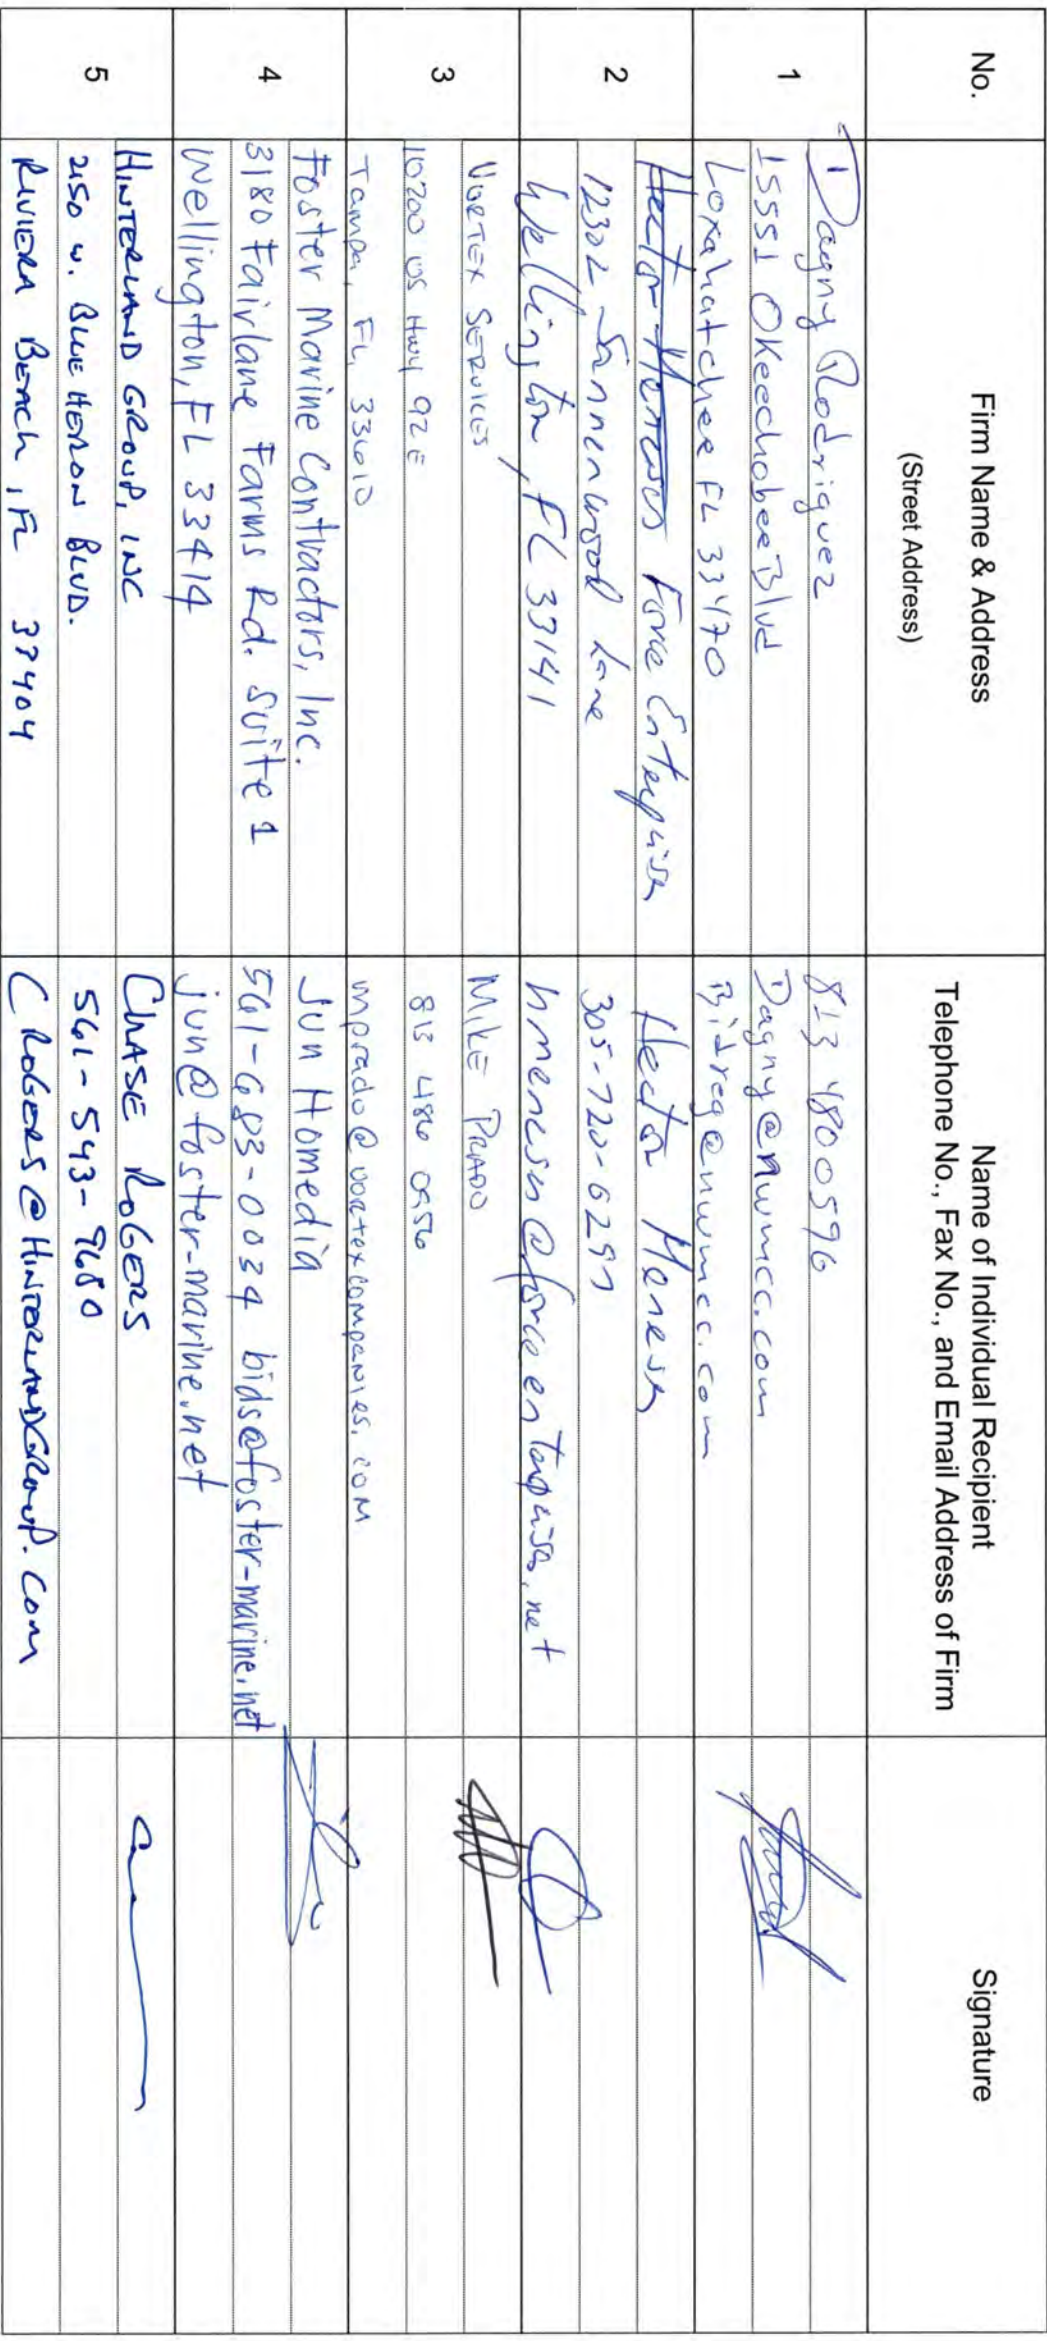 No.
Firm Name & Address
(Street Address)
Name of Individual Recipient
Telephone No., Fax No., and Email Address of Firm
Signature
1
Dagny Rodriguez
15551 Okeechobee Blvd
Loxahatchee FL 33470
813 480 0596
Dagny@nwmcc.com
Bidreg@nwmcc.com
2
Force Enterprise
12302 Sunnenwood Lane
Wellington, FL 33141
Hector Meneses
305-720-6297
3
VORTEX SERVICES
10200 US Hwy 92 E
Tampa, FL 33610
MIKE PRADO
813 486 0956
mprado@vortexcompanies.com
4
Foster Marine Contractors, Inc.
3180 Fairlane Farms Rd. Suite 1
Wellington, FL 33414
Jun Homedia
561-683-0034 bids@foster-marine.net
jun@foster-marine.net
5
HINTERLAND GROUP, INC
2150 W. BLUE HERON BLVD.
RIVIERA BEACH, FL 33404
CHASE ROGERS
561-543-9680
CROGERS@HINTERLANDGROUP.COM